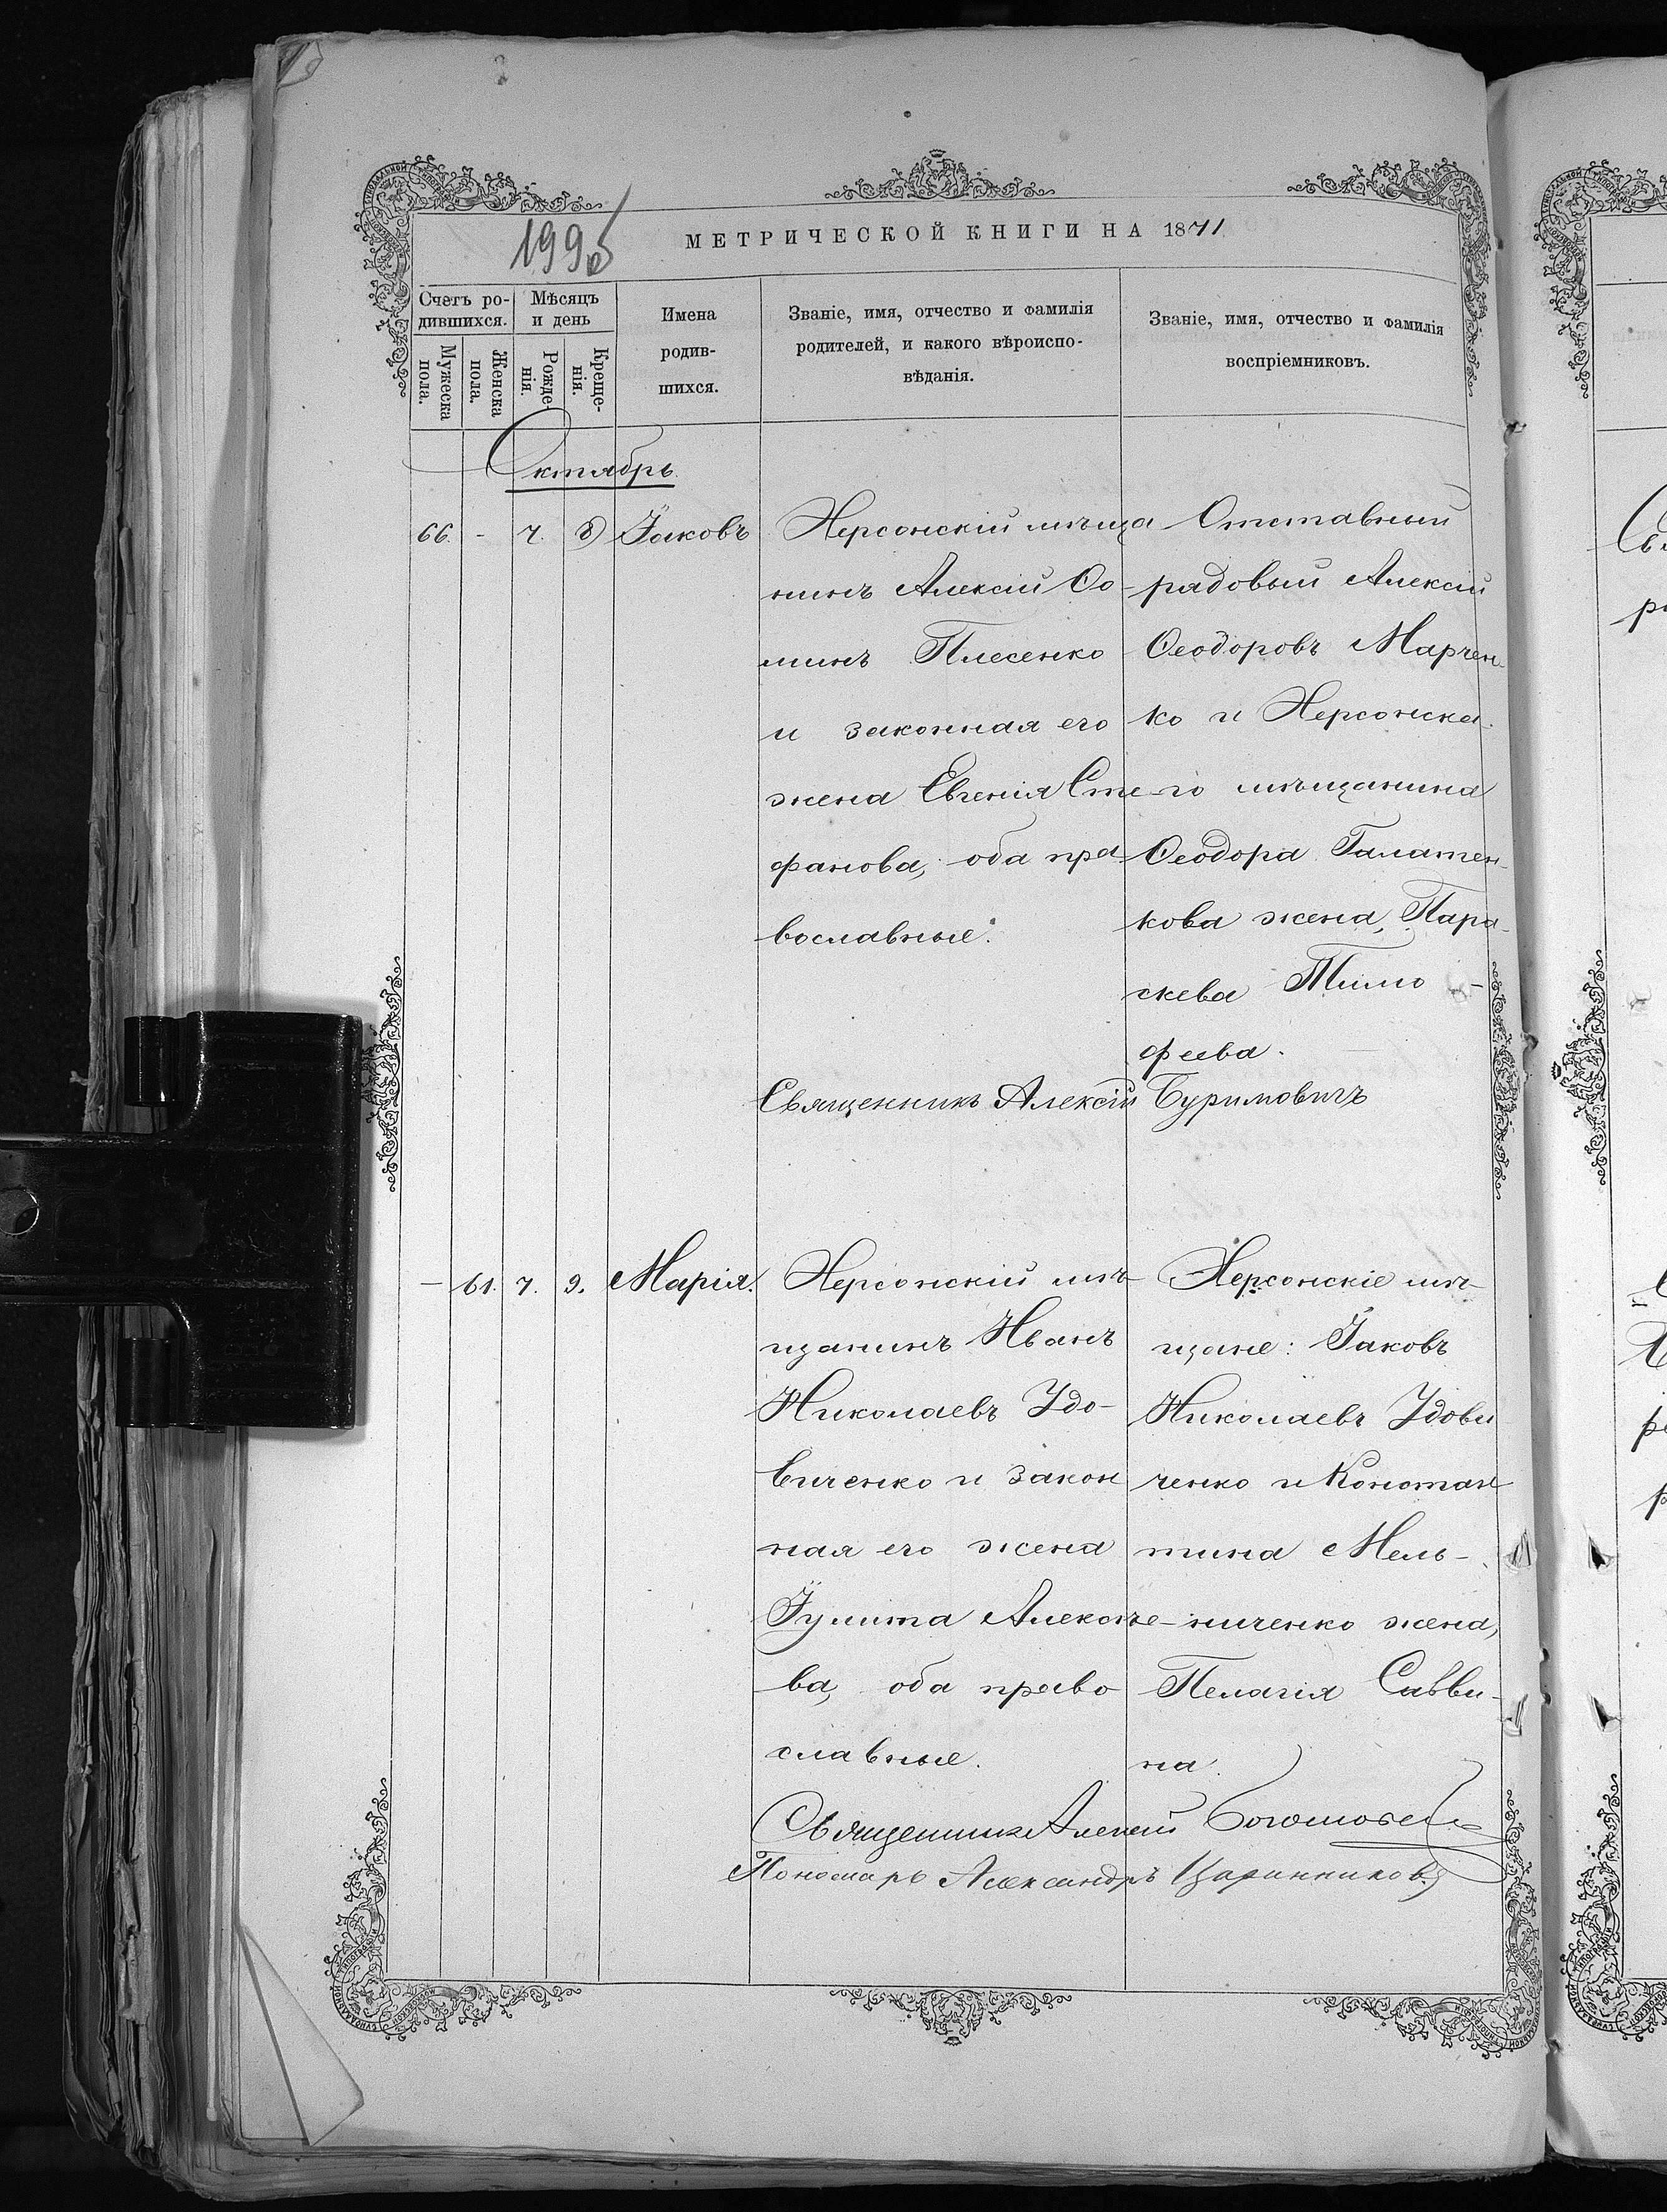 1995
МЕТРИЧЕСКОЙ КНИГИ НА 1871
Счетъ ро-
дившихся.
Мѣсяцъ
и день
Мужеска
пола.
Женска
пола.
Рожде-
нія.
Креще-
нія.
Имена
родив-
шихся.
Званіе, имя, отчество и фамилія
родителей, и какого вѣроиспо-
вѣданія.
Званіе, имя, отчество и фамилія
воспріемниковъ.
Октябрь
66. - 7. 8 Іаковъ
Херсонскій мѣща
нинъ Алексій Ѳо-
минъ Плесенко
и законная его
жена Евгенія Сте
фанова, оба пра
вославные.
Отставный
рядовый Алексій
Ѳеодоровъ Марчен
ко и Херсонска
го мѣщанина
Ѳеодора Галатен-
кова жена, Пара-
скева Тимо-
феева.
Священникъ Алексій Буримовичъ
- 61. 7. 9. Марія.
Херсонскій мѣ-
щанинъ Иванъ
Николаевъ Удо-
виченко и закон
ная его жена
Іулита Алексѣе-
ва, оба право
славные.
Херсонскіе мѣ-
щане: Іаковъ
Николаевъ Удови
ченко и Констан
тина Мель-
ниченко жена,
Пелагія Савви-
на.
Священникъ Алексій
Пономарь Александръ Царинниковъ